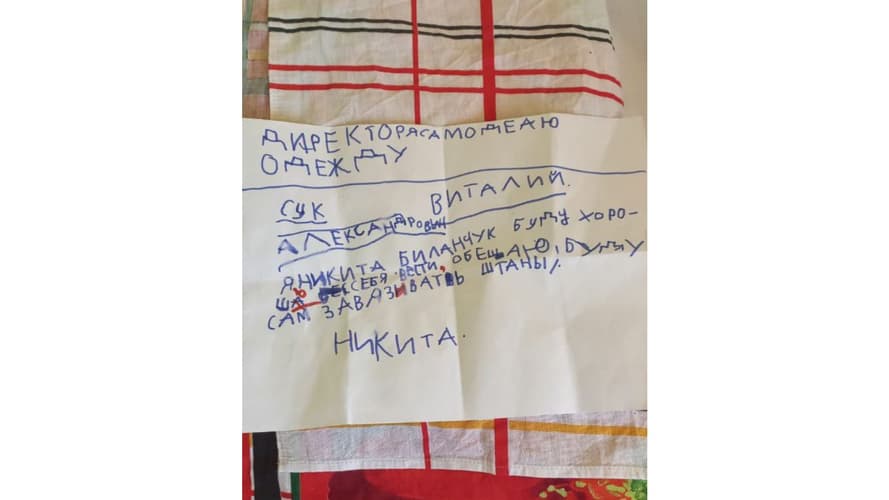 ДИРЕКТОРЯСАМОДЕАЮ
ОДЕЖДУ
СУК ВИТАЛИЙ.
АЛЕКСАНДРОВЫЧ
ЯНИКИТА БИЛАНЧУК БУДУ ХОРО-
ШО СЕБЯ ВЕСТИ, ОБЕЩАЮ, БУДУ
САМ ЗАВЯЗИВАТЬ ШТАНЫ.
НИКИТА.